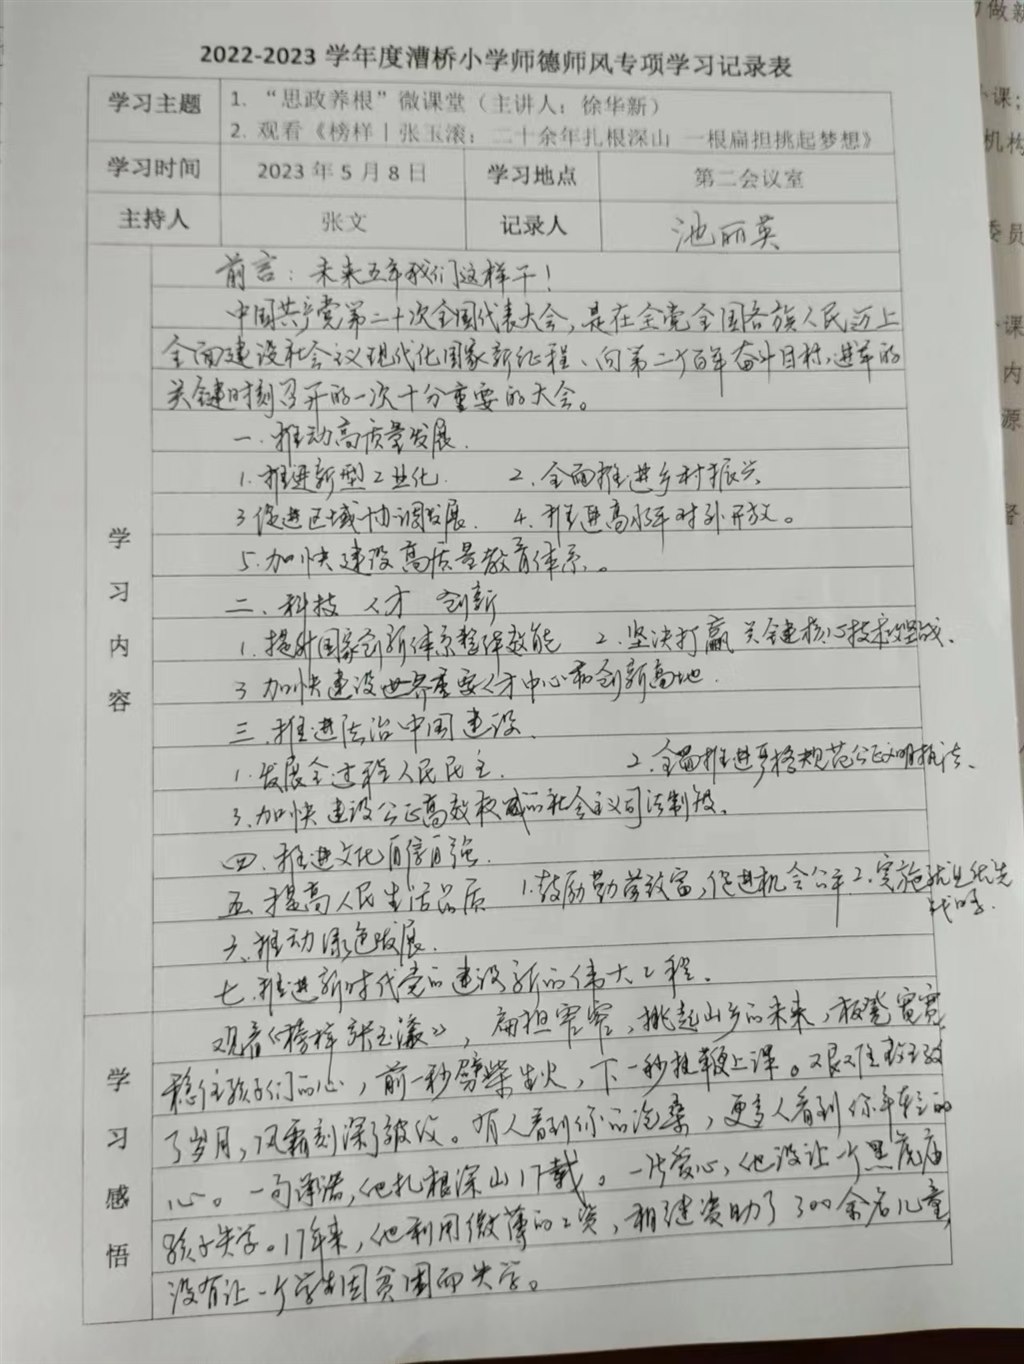 2022-2023 学年度漕桥小学师德师风专项学习记录表
学习主题
1. “思政养根”微课堂（主讲人：徐华新）
2. 观看《榜样丨张玉滚：二十余年扎根深山 一根扁担挑起梦想》
学习时间 2023 年 5 月 8 日 学习地点 第二会议室
主持人 张文 记录人 池丽英
学习内容
前言：未来五年我们这样干！
中国共产党第二十次全国代表大会，是在全党全国各族人民迈上
全面建设社会主义现代化国家新征程、向第二个百年奋斗目标，进军的
关键时刻召开的一次十分重要的大会。
一．推动高质量发展．
1．推进新型工业化． 2．全面推进乡村振兴
3 促进区域协调发展． 4．推进高水平对外开放。
5．加快建设高质量教育体系。
二．科技 人才 创新
1．提升国家创新体系整体效能 2．坚决打赢关键核心技术攻坚战．
3 加快建设世界重要人才中心和创新高地．
三．推进法治中国建设．
1．发展全过程人民民主． 2．全面推进严格规范公正文明执法．
3．加快建设公正高效权威的社会主义司法制度．
四．推进文化自信自强．
五．提高人民生活品质 1．鼓励勤劳致富，促进机会公平 2．实施就业优先
战略．
六．推动绿色发展．
七．推进新时代党的建设新的伟大工程．
学习感悟
观看《榜样 张玉滚》，扁担窄窄，挑起山乡的未来，板凳宽宽
稳住孩子们的心，前一秒劈柴生火，下一秒执鞭上课。艰难斑驳
了岁月，风霜刻深了皱纹。有人看到你的沧桑，更多人看到你年轻的
心。一句承诺，他扎根深山17载。一片爱心，他没让一个黑虎庙
孩子失学。17年来，他利用微薄的工资，相继资助了300余名儿童，
没有让一个学生因贫困而失学。